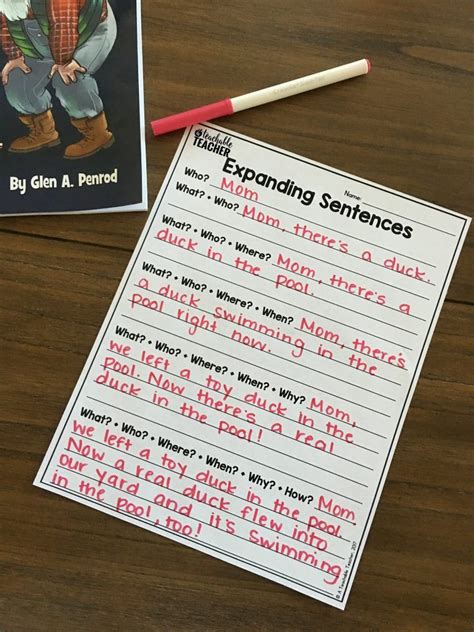 By Glen A. Penrod
a teachable
TEACHER
Name:
Expanding Sentences
Who? Mom
What? • Who? Mom, there's a duck.
What? • Who? • Where? Mom, there's a
duck in the pool.
What? • Who? • Where? • When? Mom, there's
a duck swimming in the
pool right now.
What? • Who? • Where? • When? • Why? Mom,
we left a toy duck in the
pool. Now there's a real
duck in the pool!
What? • Who? • Where? • When? • Why? • How? Mom,
we left a toy duck in the pool.
Now a real duck flew into
our yard and it's swimming
in the pool, too!
© A Teachable Teacher, 2017